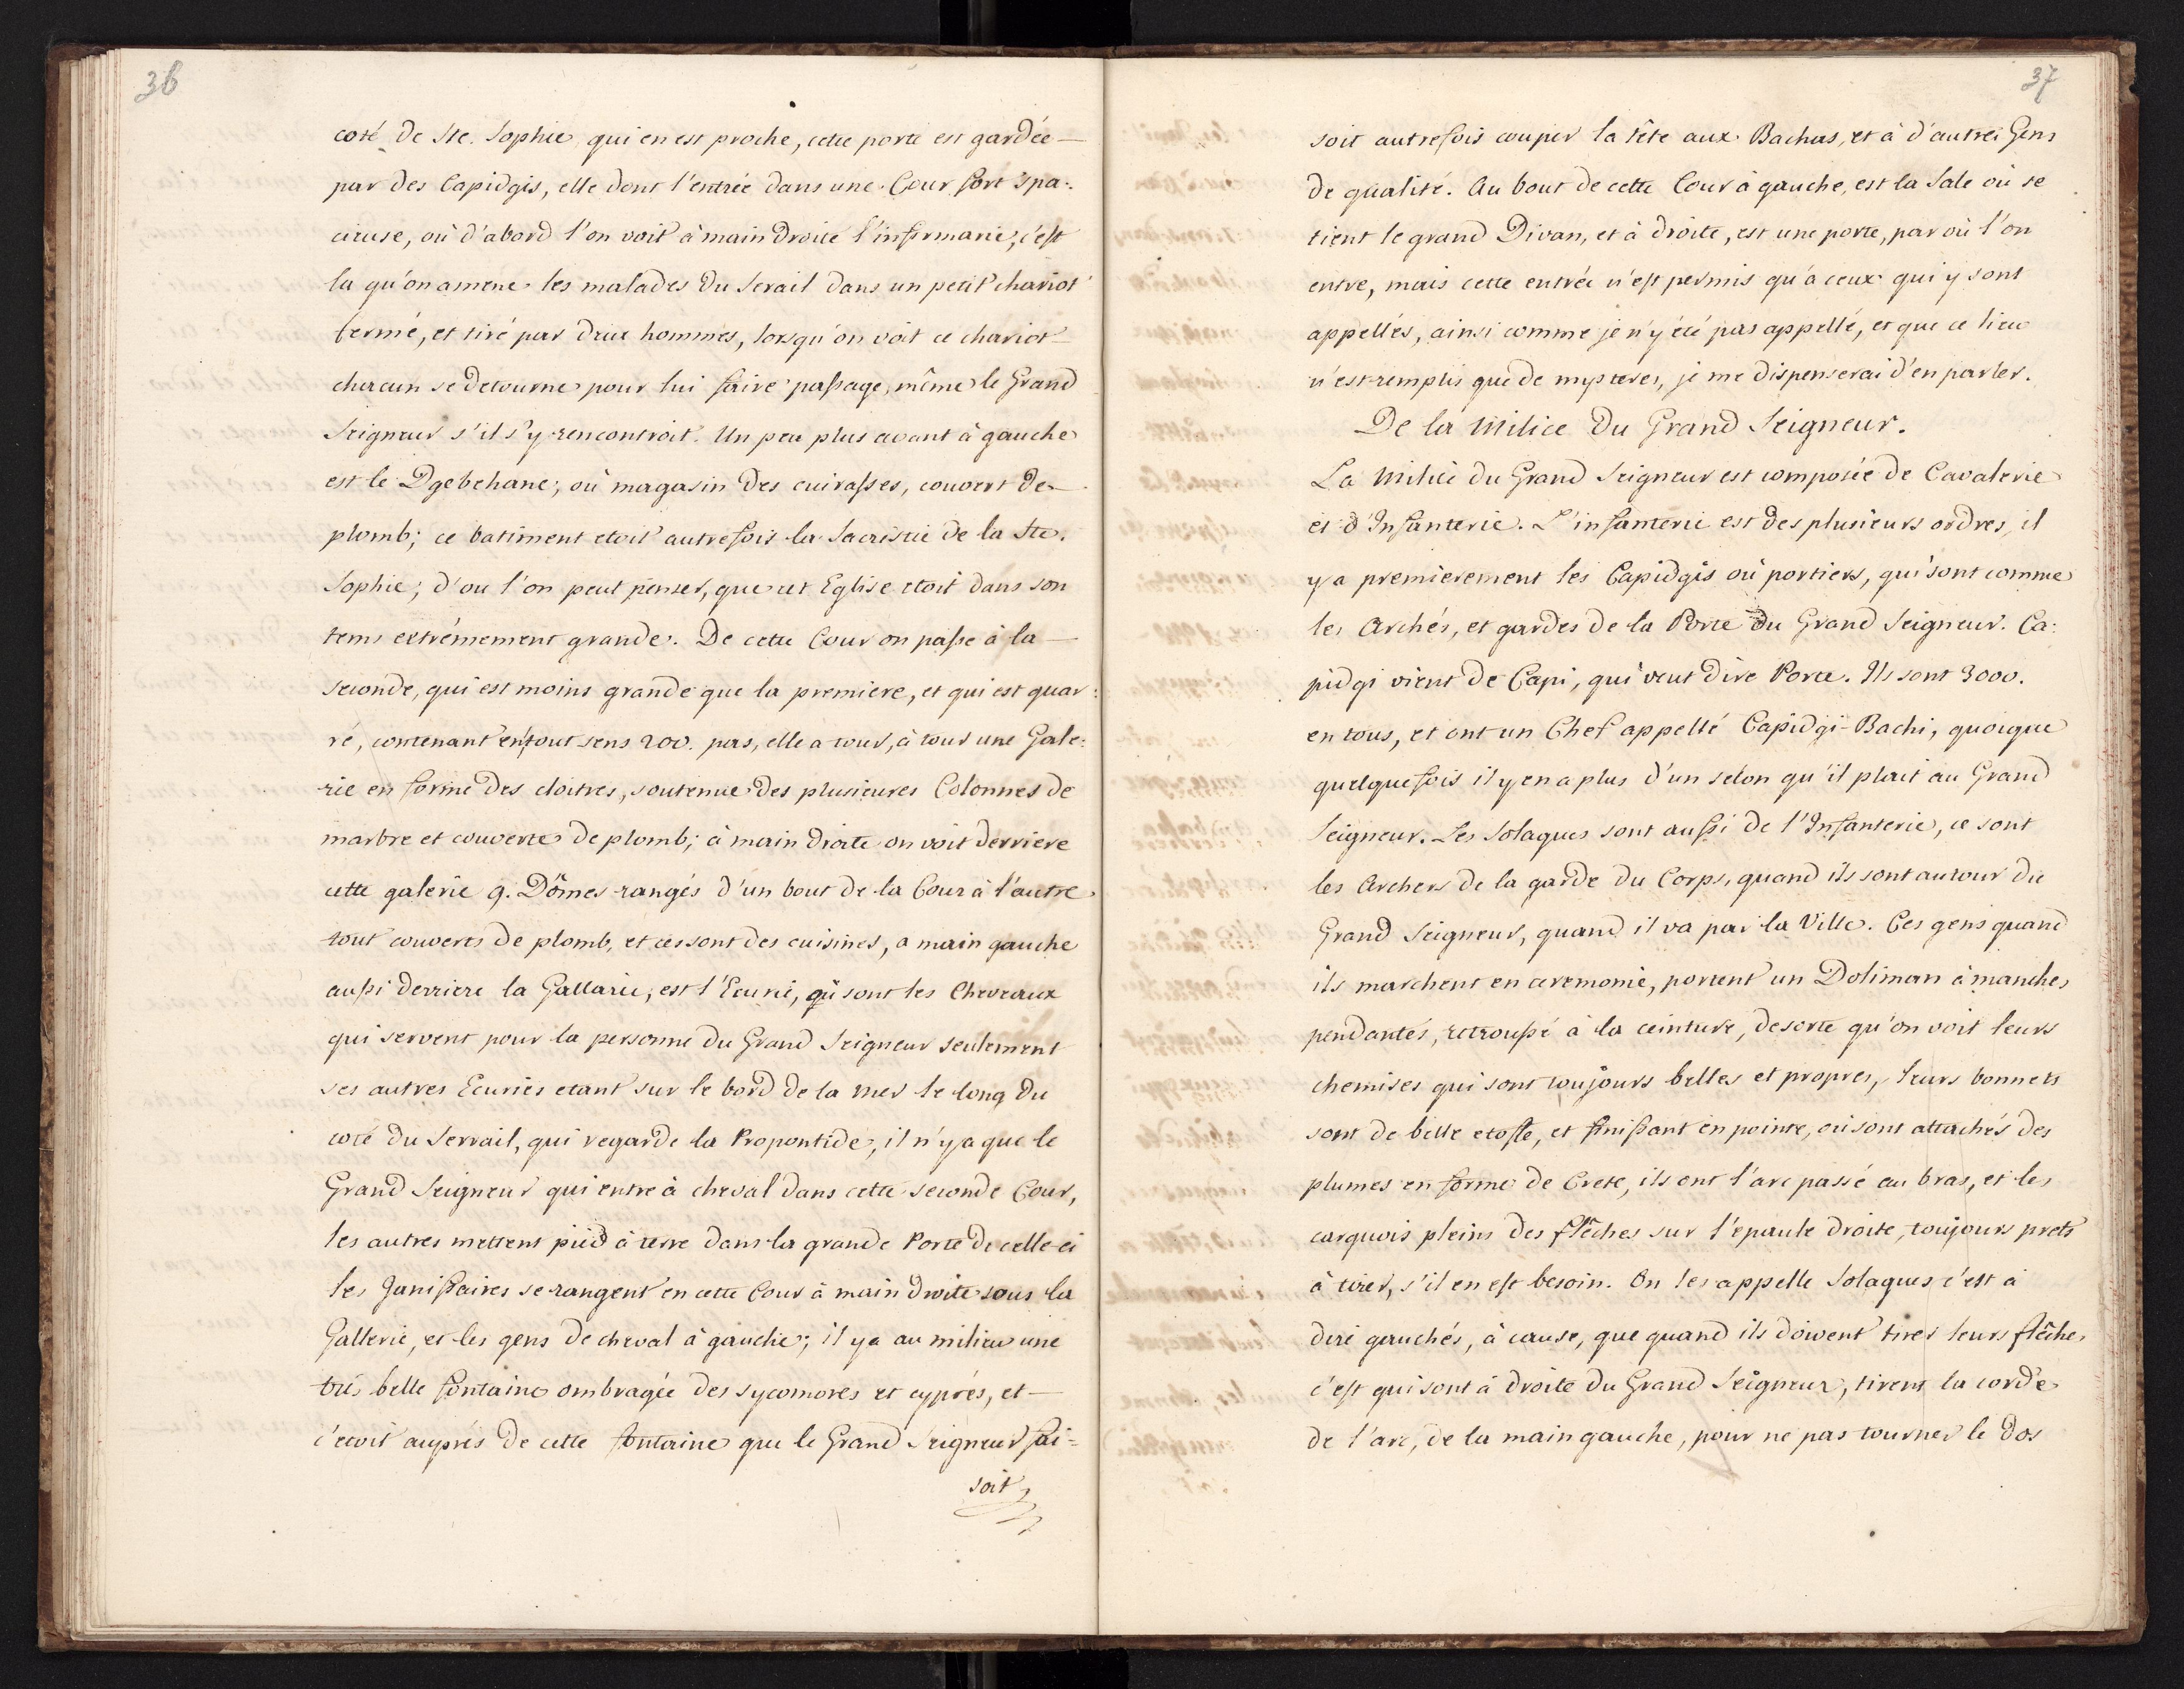 36
coté de Ste. Sophie qui en est proche, cette porte est gardée —
par des Capidgis, elle dont l'entrée dans une Cour fort spa:
cieuse, où d'abord l'on voit à main droite l'infirmarie, c'est
la qu'on amene les malades du Serail dans un petit chariot
fermé, et tiré par deux hommes, lorsqu'on voit ce chariot —
chacun se detourne pour lui faire passage, même le Grand
Seigneur s'il s'y rencontroit. Un peu plus avant à gauche
est le Dgebehane; où magasin des cuirasses, couvert de —
plomb; ce batiment etoit autrefois la Sacristie de la Ste.
Sophie; d'ou l'on peut penser, que cet Eglise etoit dans son
tems extrémement grande. De cette Cour on passe à la —
seconde, qui est moins grande que la premiere, et qui est quar:
ré, contenant en tout sens 200. pas, elle a tour, à tour une Gale:
rie en forme des cloitres, soutenue des plusieures Colonnes de
marbre et couverte de plomb; à main droite on voit derriere
cette galerie 9. Dômes rangés d'un bout de la Cour à l'autre
tout couverts de plomb, et ces sont des cuisines, a main gauche
aussi derriere la Gallarie, est l'Ecurie, qù sont les Chevaux
qui servent pour la personne du Grand Seigneur seulement
ses autres Ecuries etant sur le bord de la mer le long du
coté du Serrail, qui regarde la Propontide, il n'y a que le
Grand Seigneur qui entre à cheval dans cette seconde Cour,
les autres mettent pied à terre dans la grande Porte de celle-ci
les Janissaires se rangent en cette Cour à main droite sous la
Gallerie, et les gens de cheval à gauche; il y a au milieu une
trés belle fontaine ombragée des sycomores et cyprés, et —
c'etoit auprés de cette fontaine que le Grand Seigneur fai=
soit
37
soit autrefois couper la tête aux Bachas, et à d'autres Gens
de qualité. Au bout de cette Cour à gauche, est la Sale où se
tient le grand Divan, et à droite, est une porte, par où l'on
entre, mais cette entrée n'est permis qu'à ceux qui y sont
appellés, ainsi comme je n'y été pas appellé, et que ce lieu
n'est remplis que de mysteres, je me dispenserai d'en parler.
De la Milice du Grand Seigneur.
La Milice du Grand Seigneur est composée de Cavalerie
et d'Infanterie. L'infanterie est des plusieurs ordres, il
y a premierement les Capidgis où portiers, qui sont comme
les Archés, et gardes de la Porte du Grand Seigneur. Ca:
pidgi vient de Capi, qui veut dire Porte. Ils sont 3000.
en tous, et ont un Chef appellé Capidgi-Bachi, quoique
quelquefois il y en a plus d'un selon qu'il plait au Grand
Seigneur. Les Solaques sont aussi de l'Infanterie, ce sont
les Archers de la garde du Corps, quand ils sont autour du
Grand Seigneur, quand il va par la Ville. Ces gens quand
ils marchent en ceremonie, portent un Doliman à manches
pendantés, retroussé à la ceinture, desorte qu'on voit leurs
chemises qui sont toujours belles et propres, leurs bonnets
sont de belle etoffe, et finissant en pointe, où sont attachés des
plumes en forme de Crete, ils ont l'arc passé au bras, et les
carquois pleins des flêches sur l'epaule droite, toujours prets
à tirer, s'il en est besoin. On les appelle Solaques c'est à
dire gauchés, à cause, que quand ils doivent tirer leurs flêches
c'est qui sont à droite du Grand Seigneur, tirent la corde
de l'arc, de la main gauche, pour ne pas tourner le dos